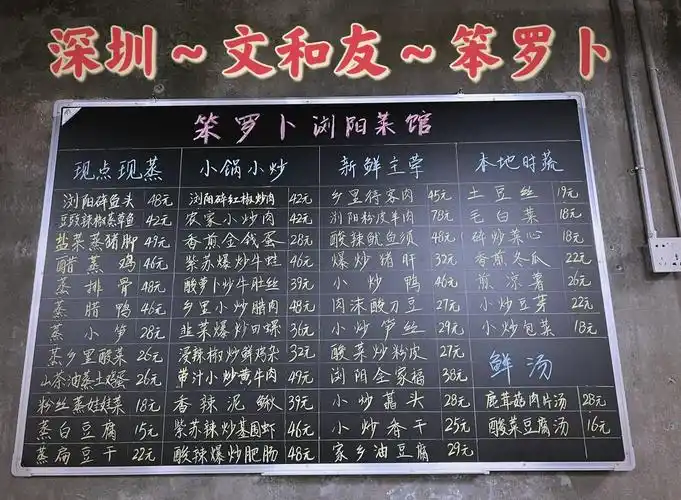 深圳~文和友~笨罗卜
笨罗卜浏阳菜馆
现点现蒸
浏阳碎鱼头 48元
豆豉辣椒蒸草鱼 42元
盐菜蒸猪脚 49元
醋蒸鸡 46元
蒸排骨 48元
蒸腊鸭 46元
蒸小笋 28元
蒸乡里酸菜 26元
山茶油蒸土鸡蛋 26元
粉丝蒸娃娃菜 18元
蒸白豆腐 15元
蒸扁豆干 22元
小锅小炒
浏阳碎红椒炒肉 42元
农家小炒肉 42元
香煎金钱蛋 28元
紫苏爆炒牛蛙 46元
酸萝卜炒牛肚丝 39元
乡里小炒腊肉 48元
韭菜爆炒田螺 36元
浸辣椒炒鲜鸡杂 32元
带汁小炒黄牛肉 49元
香辣泥鳅 39元
紫苏辣炒基围虾 46元
酸辣爆炒肥肠 48元
新鲜主荤
乡里待客肉 45元
浏阳粉皮羊肉 78元
酸辣鱿鱼须 48元
爆炒猪肝 32元
小炒鸭 46元
肉沫酸刀豆 27元
小炒笋丝 29元
酸菜炒粉皮 27元
浏阳全家福 38元
小炒藠头 28元
小炒香干 25元
家乡油豆腐 29元
本地时蔬
土豆丝 19元
毛白菜 18元
碎炒菜心 18元
香煎冬瓜 22元
煎凉薯 26元
小炒豆芽 22元
小炒包菜 18元
鲜汤
鹿茸菇肉片汤 28元
酸菜豆腐汤 16元